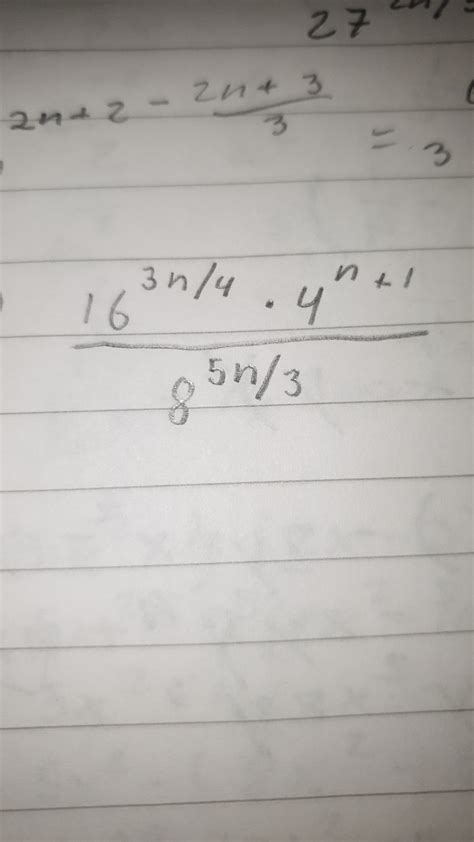 27^2n/3
2n+2 - 2n+3/3 = 3
16^3n/4 · 4^n+1
8^5n/3